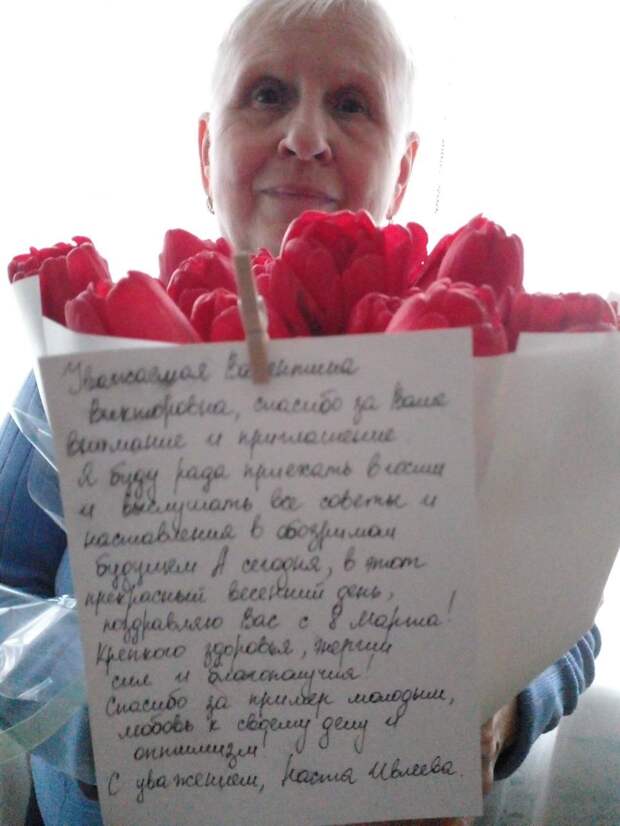 Уважаемая Валентина
Викторовна, спасибо за Ваше
внимание и приглашение
Я буду рада приехать в гости
и выслушать все советы и
наставления в обозримом
будущем А сегодня, в этот
прекрасный весенний день,
поздравляю Вас с 8 Марта!
Крепкого здоровья, энергии
сил и благополучия!
Спасибо за пример молодым,
любовь к своему делу и
оптимизм
С уважением, Настя Ивлеева.